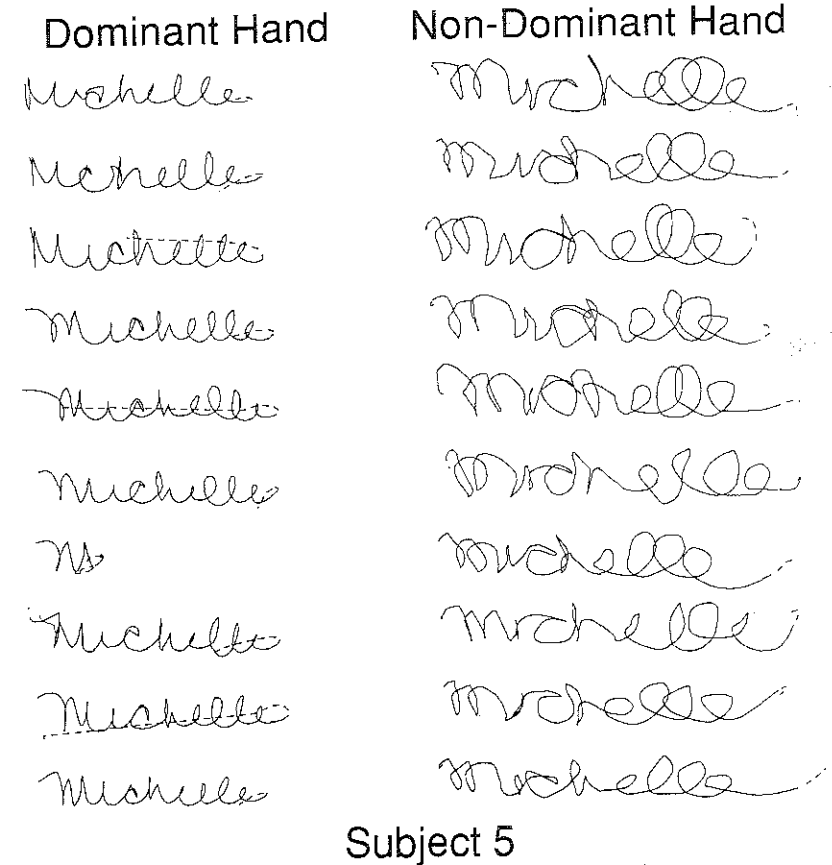 Dominant Hand Non-Dominant Hand
Michelle Michelle
Mchelle Michelle
Michelle Michelle
Michelle Michelle
Michelle Michelle
Michelle Michelle
Michelle
Michelle Michelle
Michelle Michelle
Michelle Michelle
Subject 5